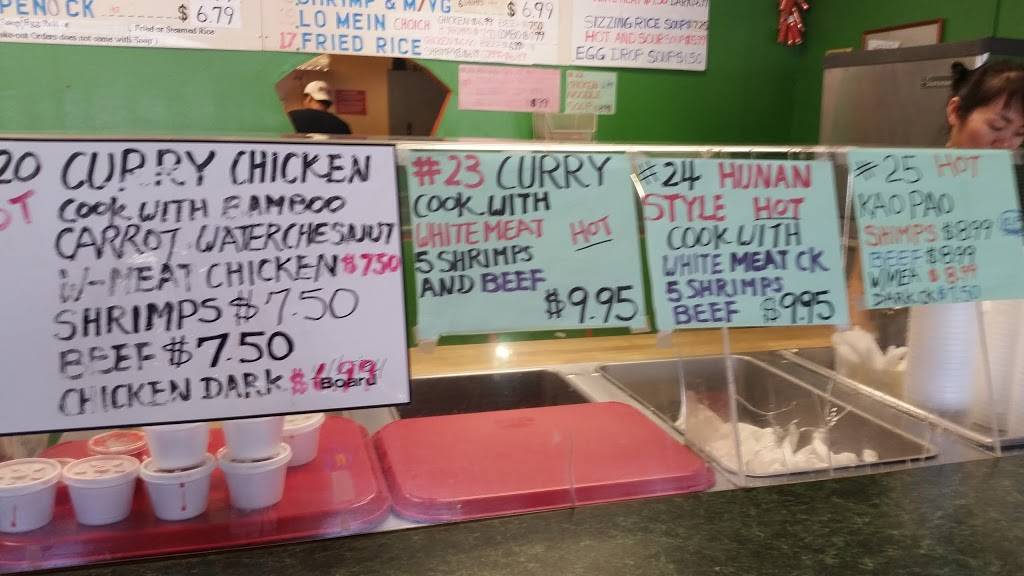 $6.79
Fried or Steamed Rice
& M/VG $6.99
LO MEIN
17. FRIED RICE
SIZZING RICE SOUP $7.25
HOT AND SOUR SOUP
EGG DROP SOUP
20 CURRY CHICKEN
COOK WITH BAMBOO
CARROT WATERCHESNUT
W-MEAT CHICKEN $7.50
SHRIMPS $7.50
BEEF $7.50
CHICKEN DARK
Board
#23 CURRY
COOK WITH
WHITE MEAT HOT
5 SHRIMPS
AND BEEF
$9.95
#24 HUNAN
STYLE HOT
COOK WITH
WHITE MEAT CK
5 SHRIMPS
BEEF $9.95
#25 HOT
KAO PAO
SHIMPS $8.99
BEEF $8.99
W/MEA $8.99
DARK CK $7.50